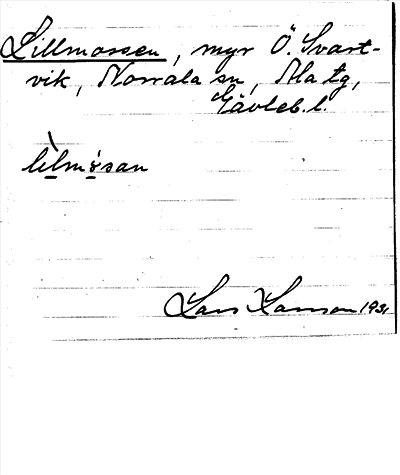 Lillmossen, myr Ö. Svart-
vik, Norrala sn, Ala tg,
Gävleb. l.
lìlmósan
Lars Larsson 1931